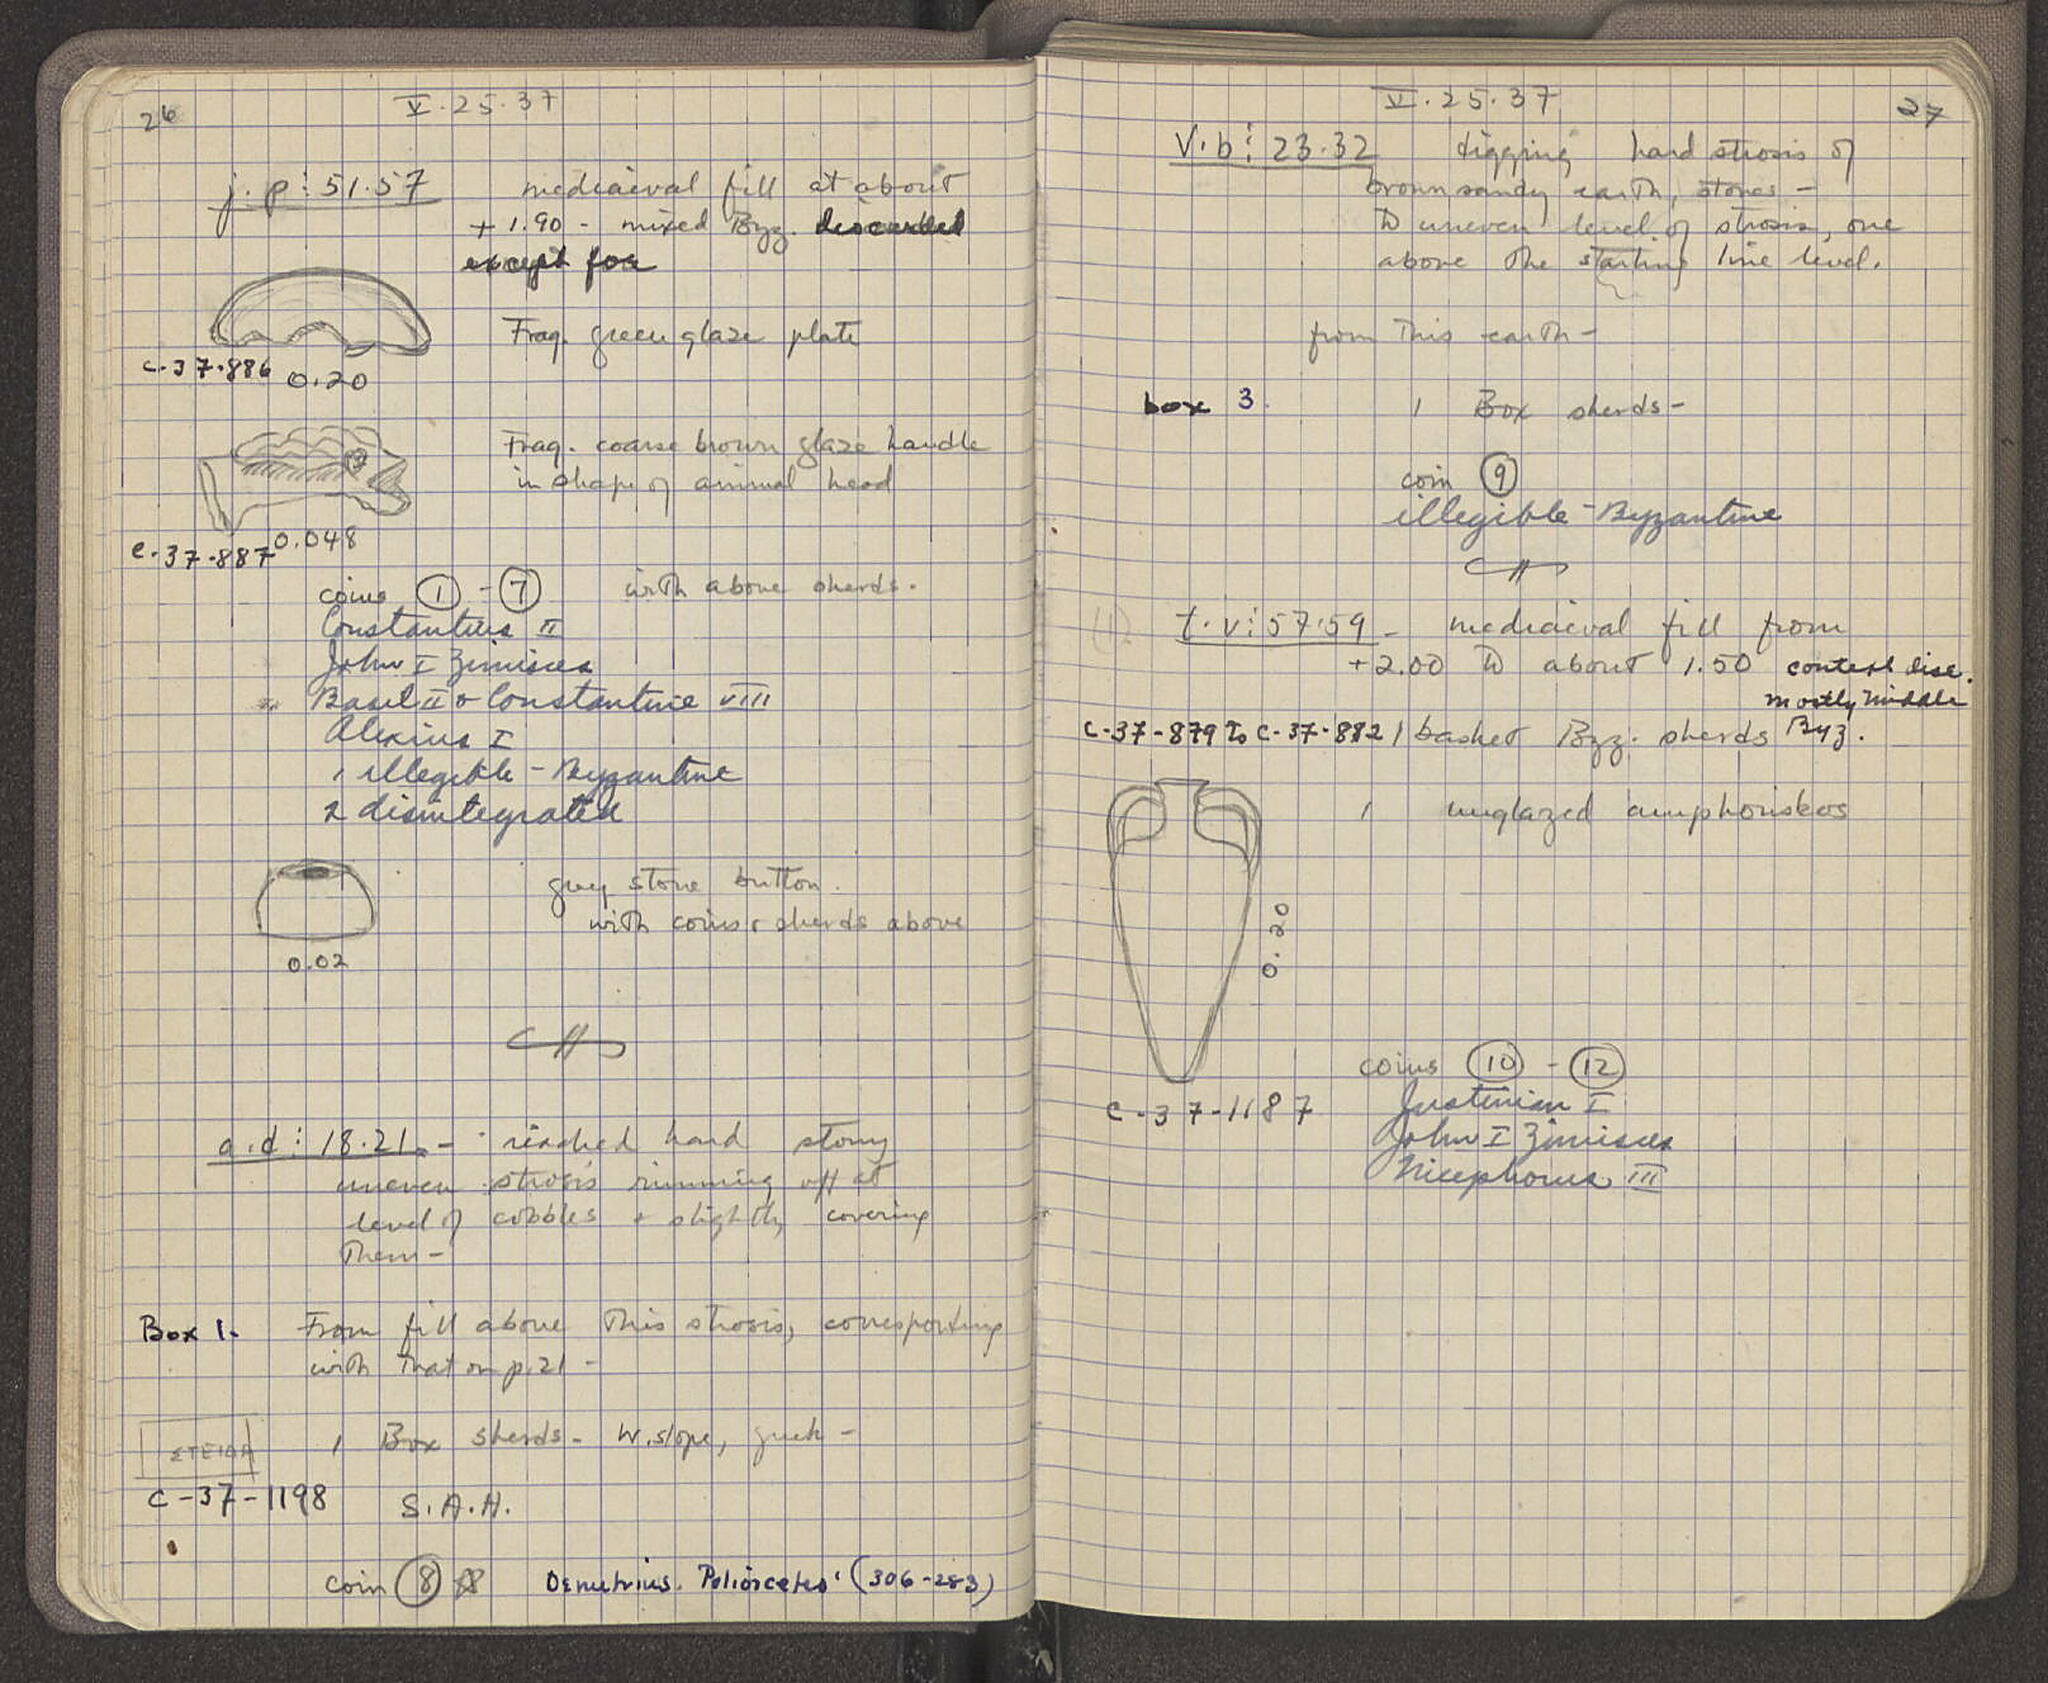 26
V.25.37
j.p: 51.57 mediaeval fill at about
+ 1.90 - mixed Byz. discarded
except for
Frag. green glaze plate
C-37-886 0.20
Frag. coarse brown glaze handle
in shape of animal head
C-37-887 0.048
coins 1 - 7 with above sherds.
Constantius II
John I Zimisces
Basil II & Constantine VIII
Alexius I
1 illegible - Byzantine
2 disintegrated
grey stone button.
with coins & sherds above
0.02
a.d: 18.21. - reached hard stony
uneven strosis running off at
level of cobbles + slightly covering
them -
Box 1. From fill above this strosis, corresponding
with that on p.21 -
ΣΤΕΙΘΑ
1 Box sherds - W. slope, Greek -
C-37-1198
S.A.H.
coin 8 Demetrius Poliorcetes (306-283)
27
V.25.37
V.b: 23.32 digging hard strosis of
brown sandy earth, stones -
to uneven level of strosis, one
above the starting line level.
from this earth -
box 3. 1 Box sherds -
coin 9
illegible - Byzantine
(1) t.v: 57.59 - mediaeval fill from
+2.00 to about 1.50 context disc.
mostly middle
C-37-879 to C-37-882 1 basket Byz. sherds Byz.
1 unglazed amphoriskos
0.20
C-37-1187
coins 10 - 12
Justinian I
John I Zimisces
Nicephorus III